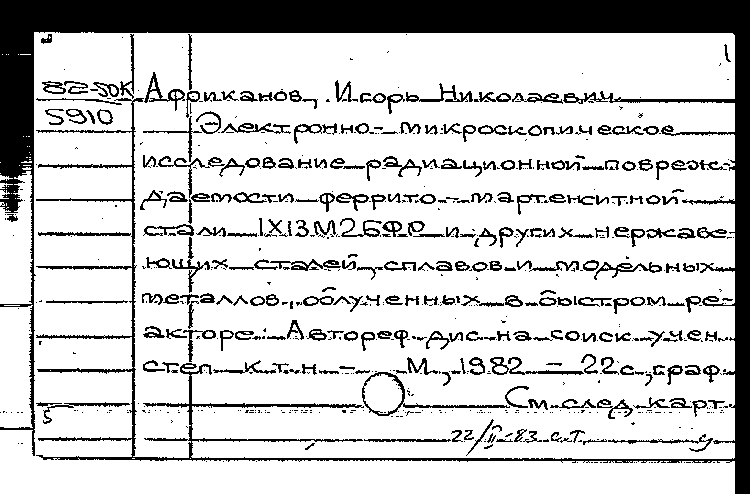 1
82-5ДК Африканов, Игорь Николаевич
5910 Электронно-микроскопическое
исследование радиационной повреж-
даемости феррито-мартенситной
стали 1Х13М2БФР и других нержаве-
ющих сталей, сплавов и модельных
металлов, облученных в быстром ре-
акторе: Автореф дис на соиск учен
степ к.т.н. - М, 1982 - 22с, граф
См след карт
5
22/II-83 с.т.